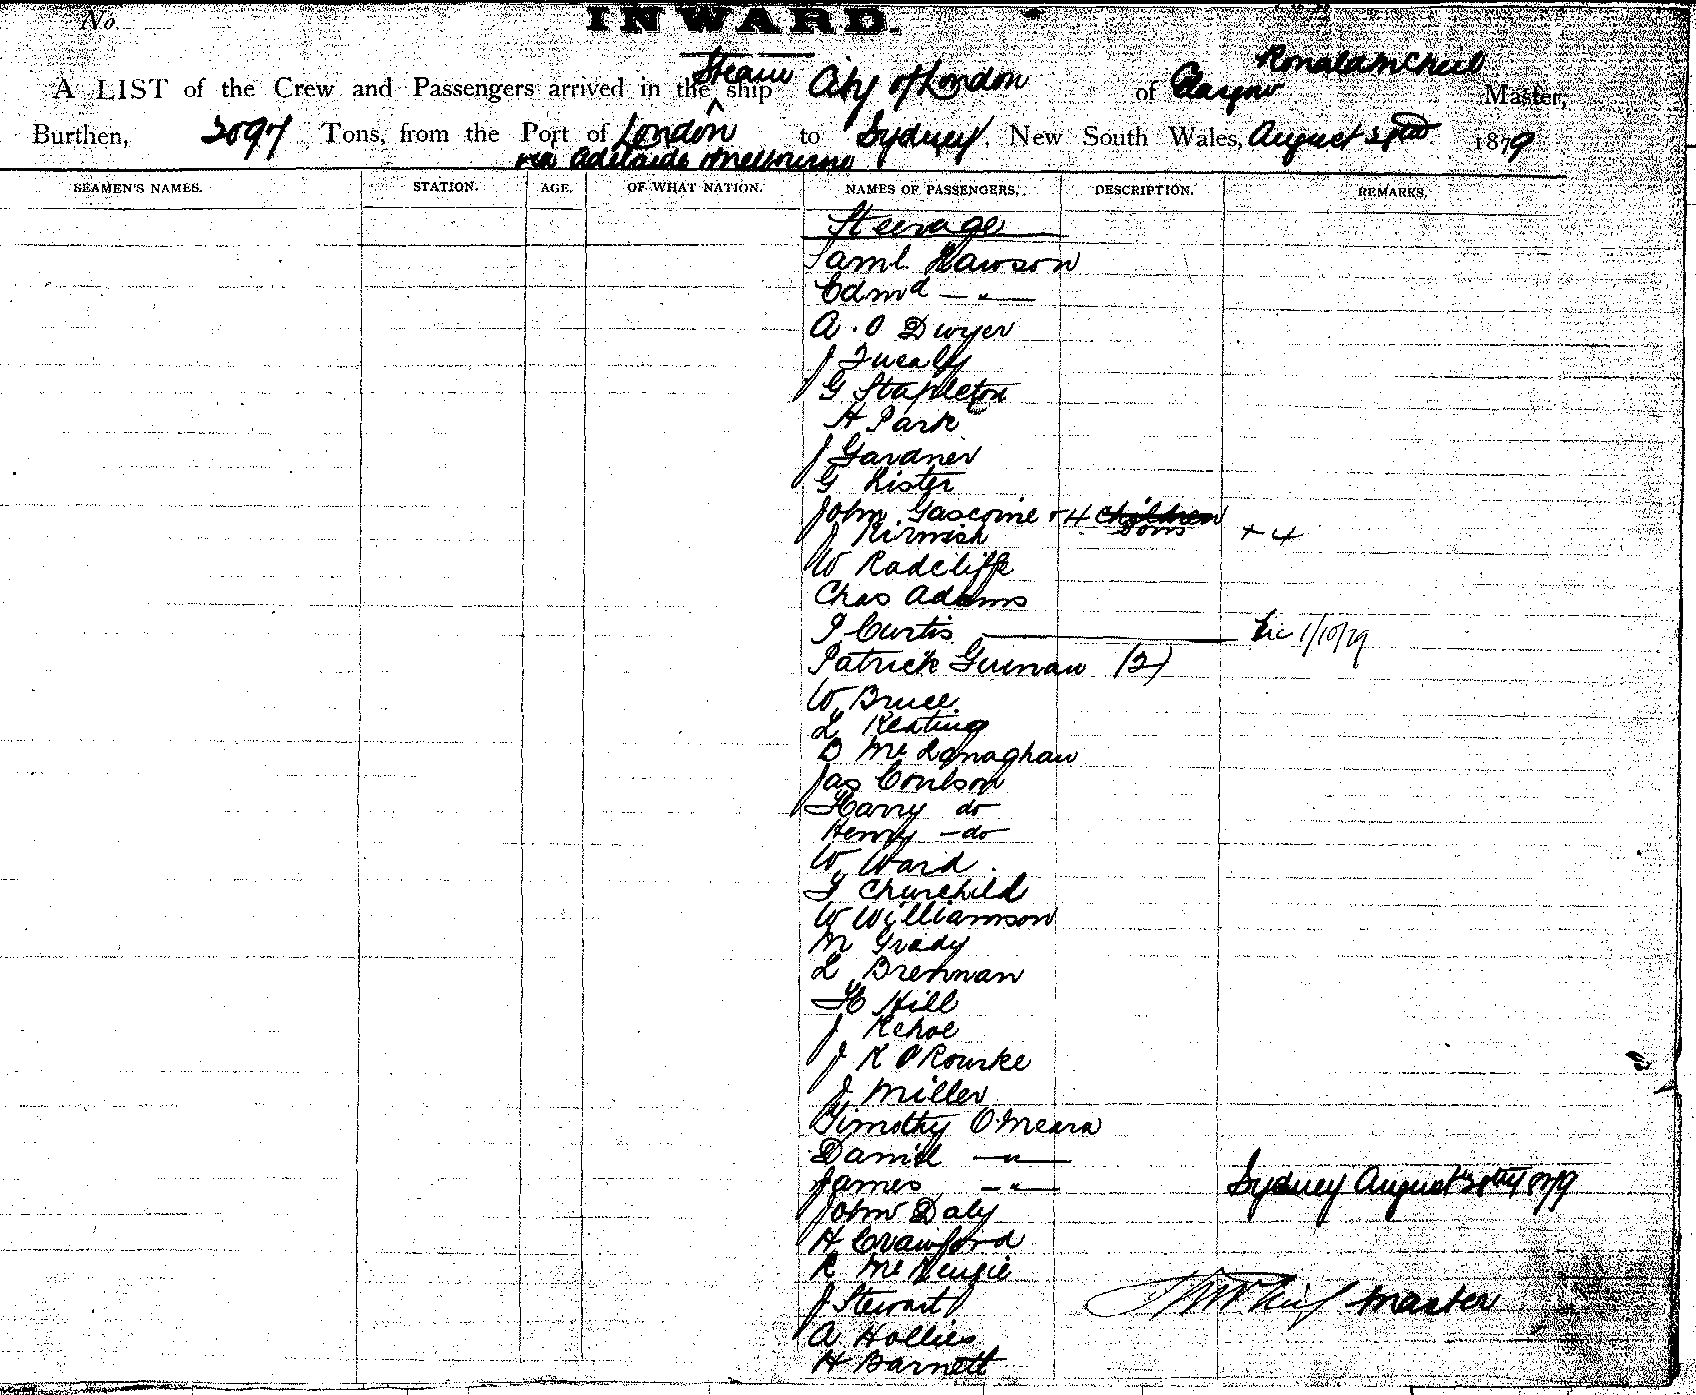 No.
INWARD.
Steam Ronald McNeil
A LIST of the Crew and Passengers arrived in the ^ ship City of London of Glasgow Master,
Burthen, Tons, from the Port of London to Sydney, New South Wales, August 1879
via Adelaide & Melbourne
SEAMEN'S NAMES. STATION. AGE. OF WHAT NATION. NAMES OF PASSENGERS. DESCRIPTION. REMARKS.
Steerage
Saml. Rawson
Edmd — " —
A. O Dwyer
J
G Stapleton
H Park
J Gardner
G Lister
John Gascoine + 4 children
sons + 4
J
W Radcliffe
Chas Adams
P Curtis 1/10/79
Patrick (2)
W Bruce
L Keating
B
Jas Coulson
Harry do
Henry - do
W Ward
F Churchild
W Williamson
M Grady
L Brennan
H Hill
J Kehoe
J K O'Rourke
J Miller
Timothy O'Meara
Daniel — " —
James — " —
Sydney August 1879
John Daly
H Crawford
R McKenzie
J Stewart
Master
A Hollies
H Barnett